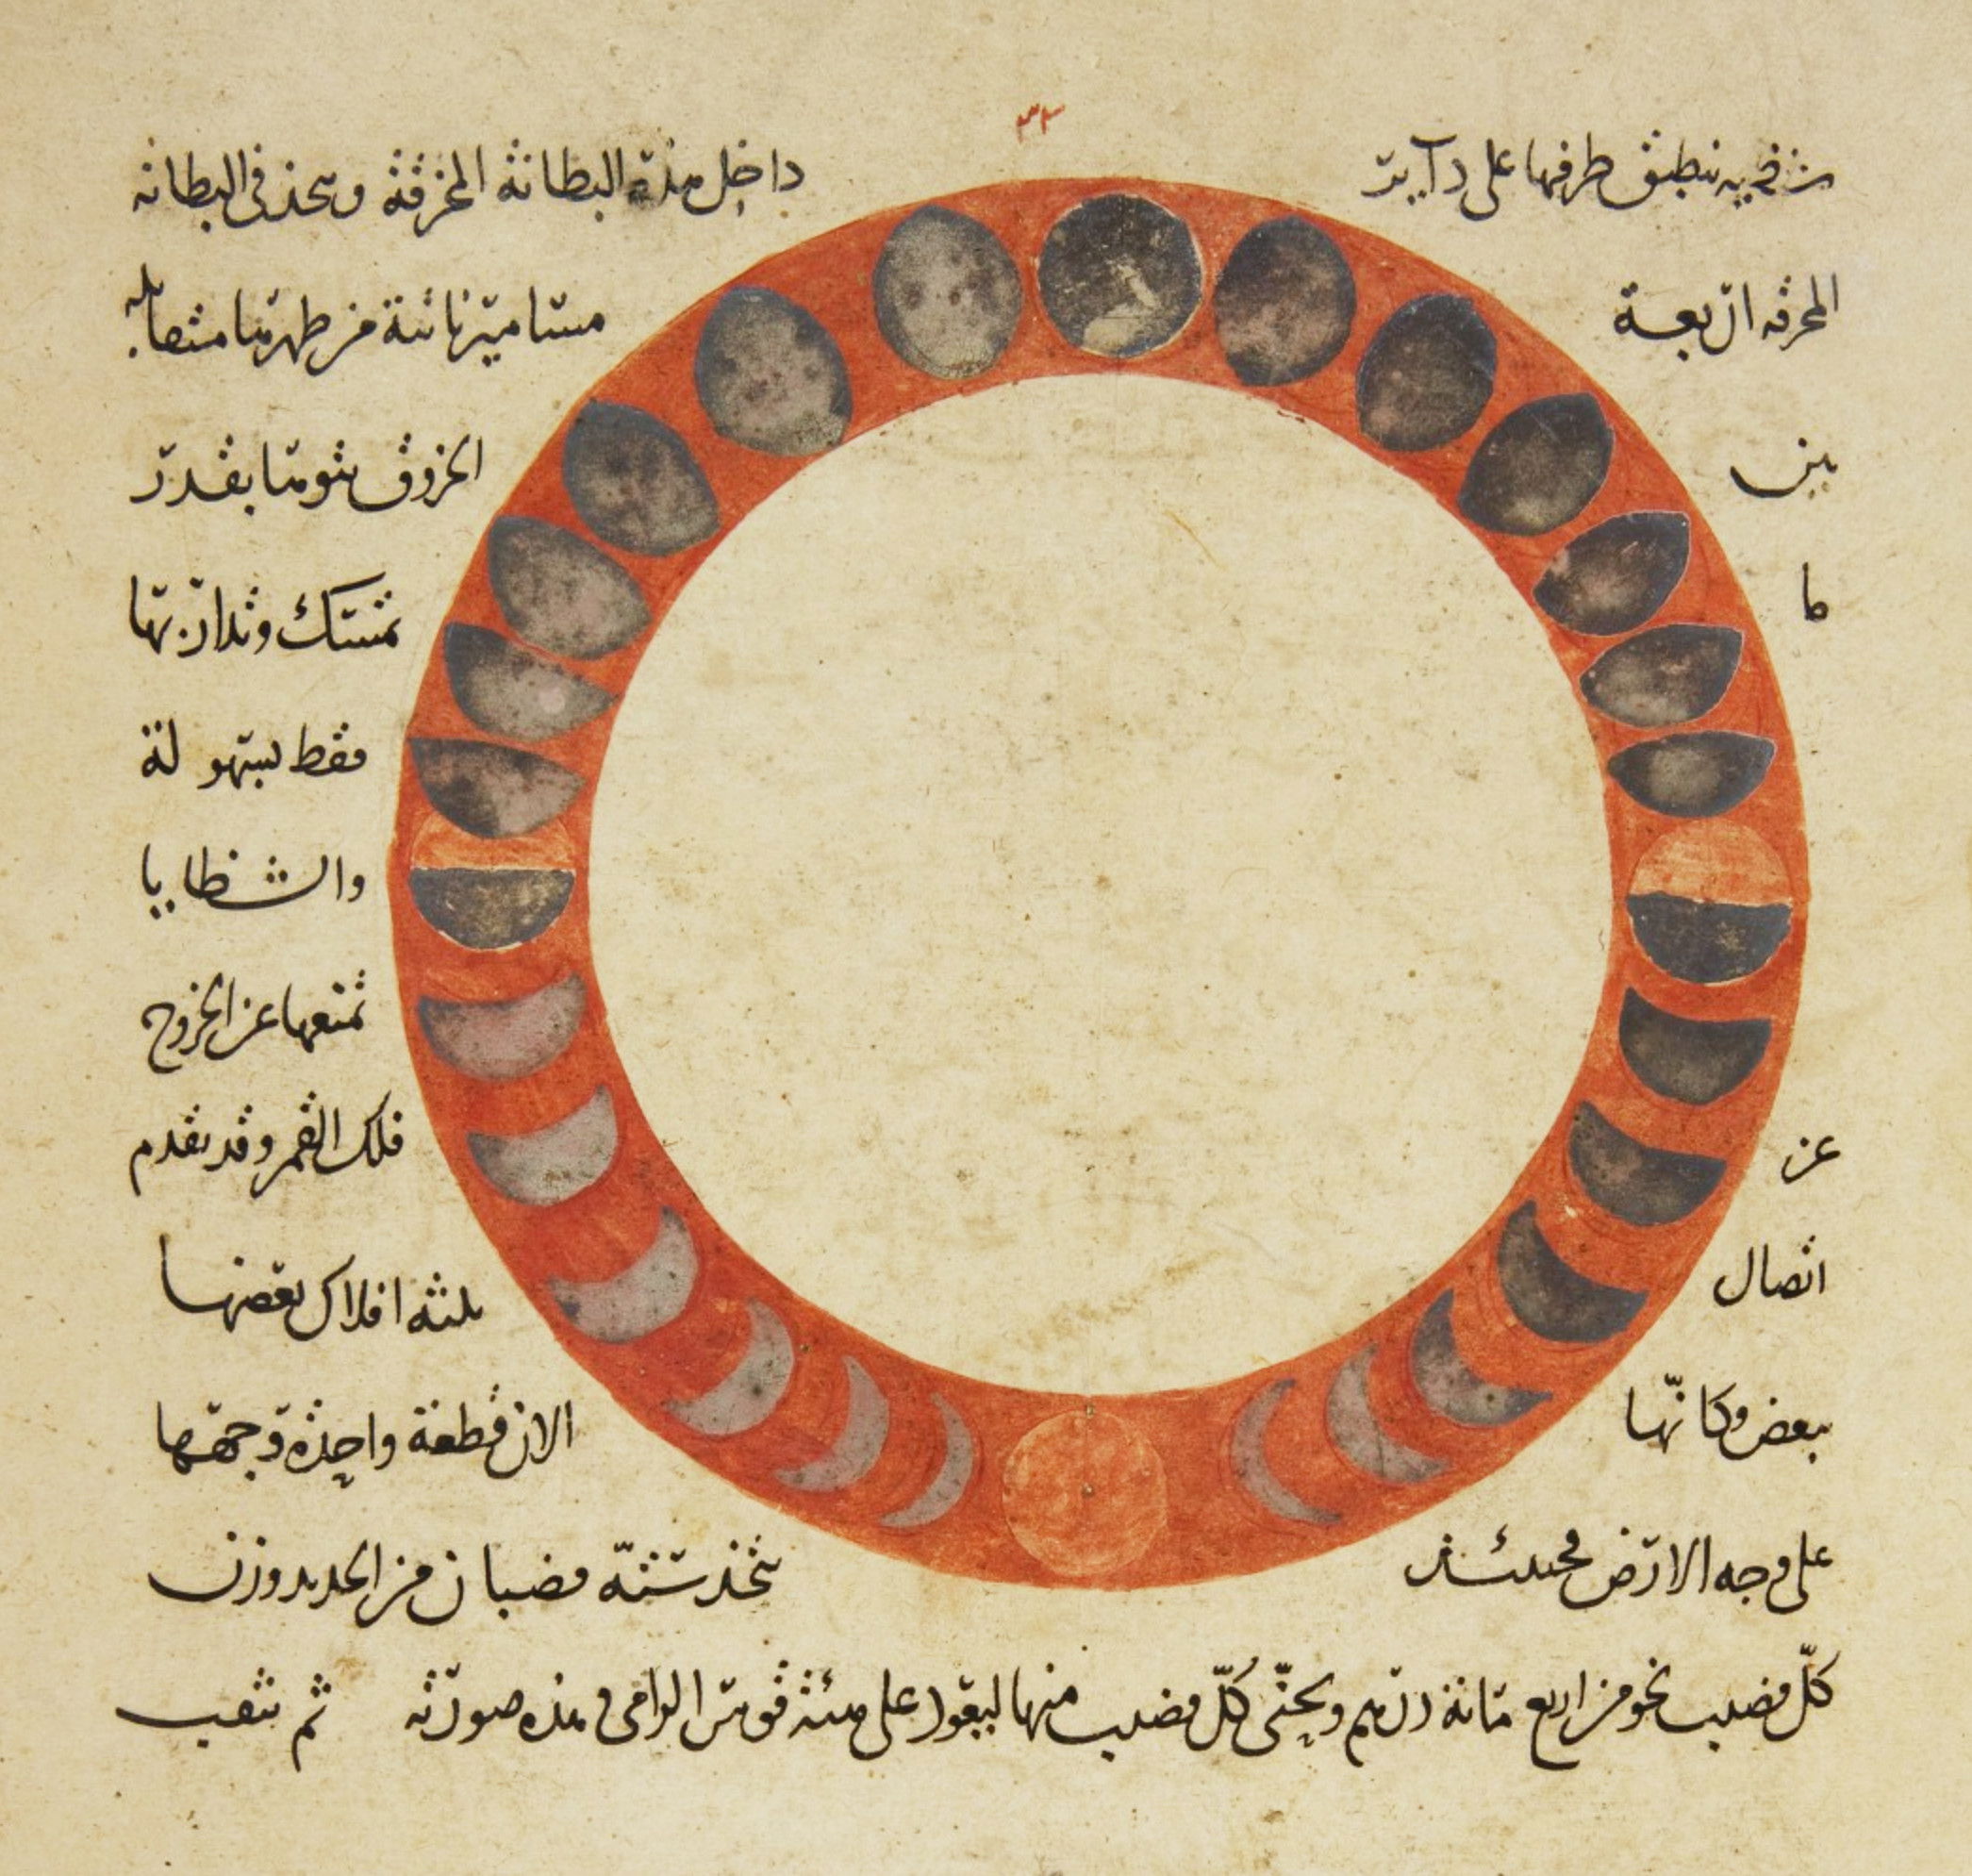 ينطبق طرفها على دايرة داخل هذه البطانة المخرقة ويتخذ في البطانه
المخرقه اربعة مسامير ناتئة من ظهرها متقابله
بين الخروق بقدر
ما تمسك وتدار بها
فقط بسهولة
والشظايا
تمنعها عن الخروج
عن فلك القمر وقد تقدم
اتصال ثلثه افلاك بعضها
ببعض وكانّها الان قطعة واحدة وجهها
على وجه الارض فحينئذ يتخذ ستّة قضبان من الحديد وزن
كلّ قضيب نحو من اربع مائة درهم ويحنّى كلّ قضيب منها ليعود على هيئة قوس الرامى وهذه صورته ثم يثقب